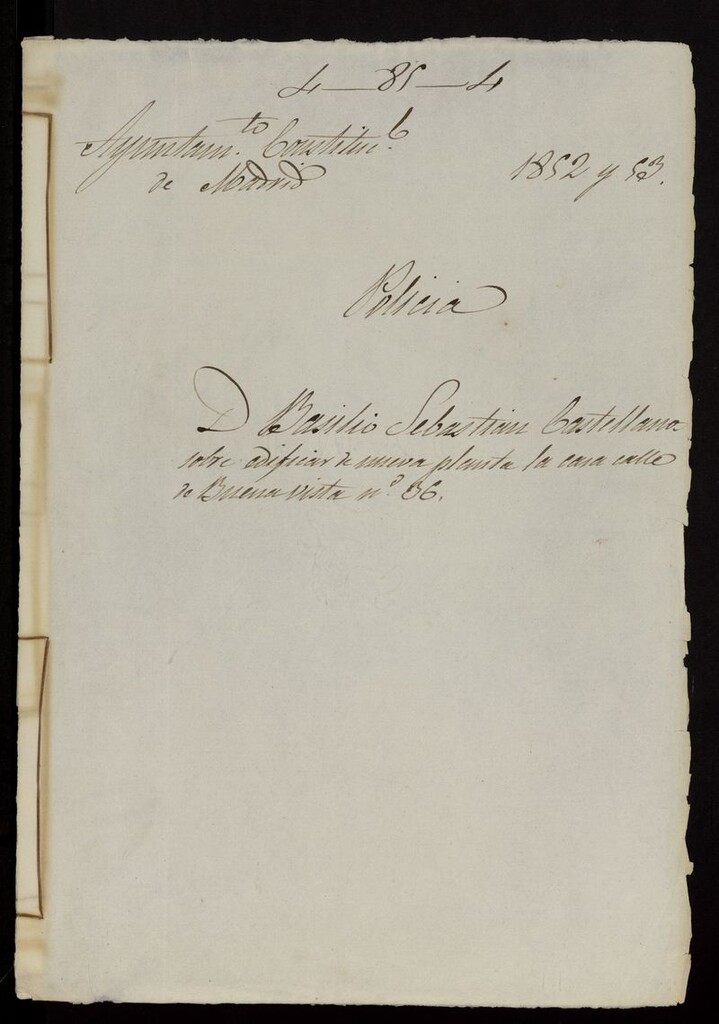 4 — 85 — 4
Ayuntam.to Constituc.l
de Madrid
1852 y 53.
Policia
D Basilio Sebastian Castellanos
sobre edificar de nueva planta la casa calle
de Buena vista nº 36.